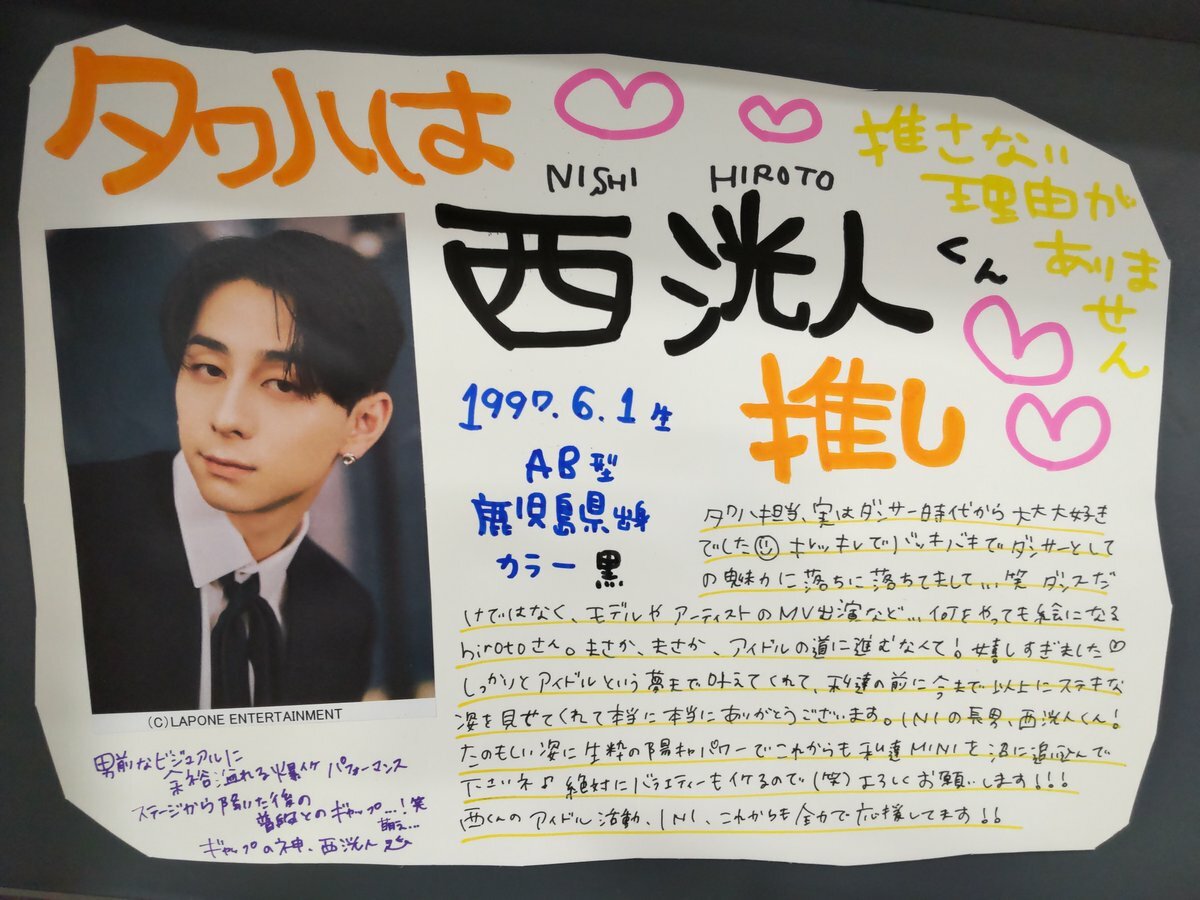 タワハは
推さない
理由が
ありま
せん
NISHI HIROTO
西 洸人 くん
推し
1997.6.1生
AB型
鹿児島県出身
カラー 黒
(C)LAPONE ENTERTAINMENT
タワハ担当、実はダンサー時代から大大大好き
でした キレッキレでバッキバキでダンサーとして
の魅力に落ちに落ちてまして...笑 ダンスだ
けではなく、モデルやアーティストのMV出演など...何をやっても絵になる
hirotoさん。まさか、まさか、アイドルの道に進むなんて!嬉しすぎました♡
しっかりとアイドルという夢まで叶えてくれて、私達の前に今まで以上にステキな
姿を見せてくれて本当に本当にありがとうございます。INIの長男、西洸人くん!
たのもしい姿に生粋の陽キャパワーでこれからも私達MINIを沼に追込んで
下さいネ♪ 絶対にバラエティーもイケるので(笑)よろしくお願いします!!!
西くんのアイドル活動、INI、これからも全力で応援してます!!
男前なビジュアルに
余裕溢れる爆イケ パフォーマンス
ステージから降りた後の
普段とのギャップ...!笑
萌え...
ギャップの神、西洸人